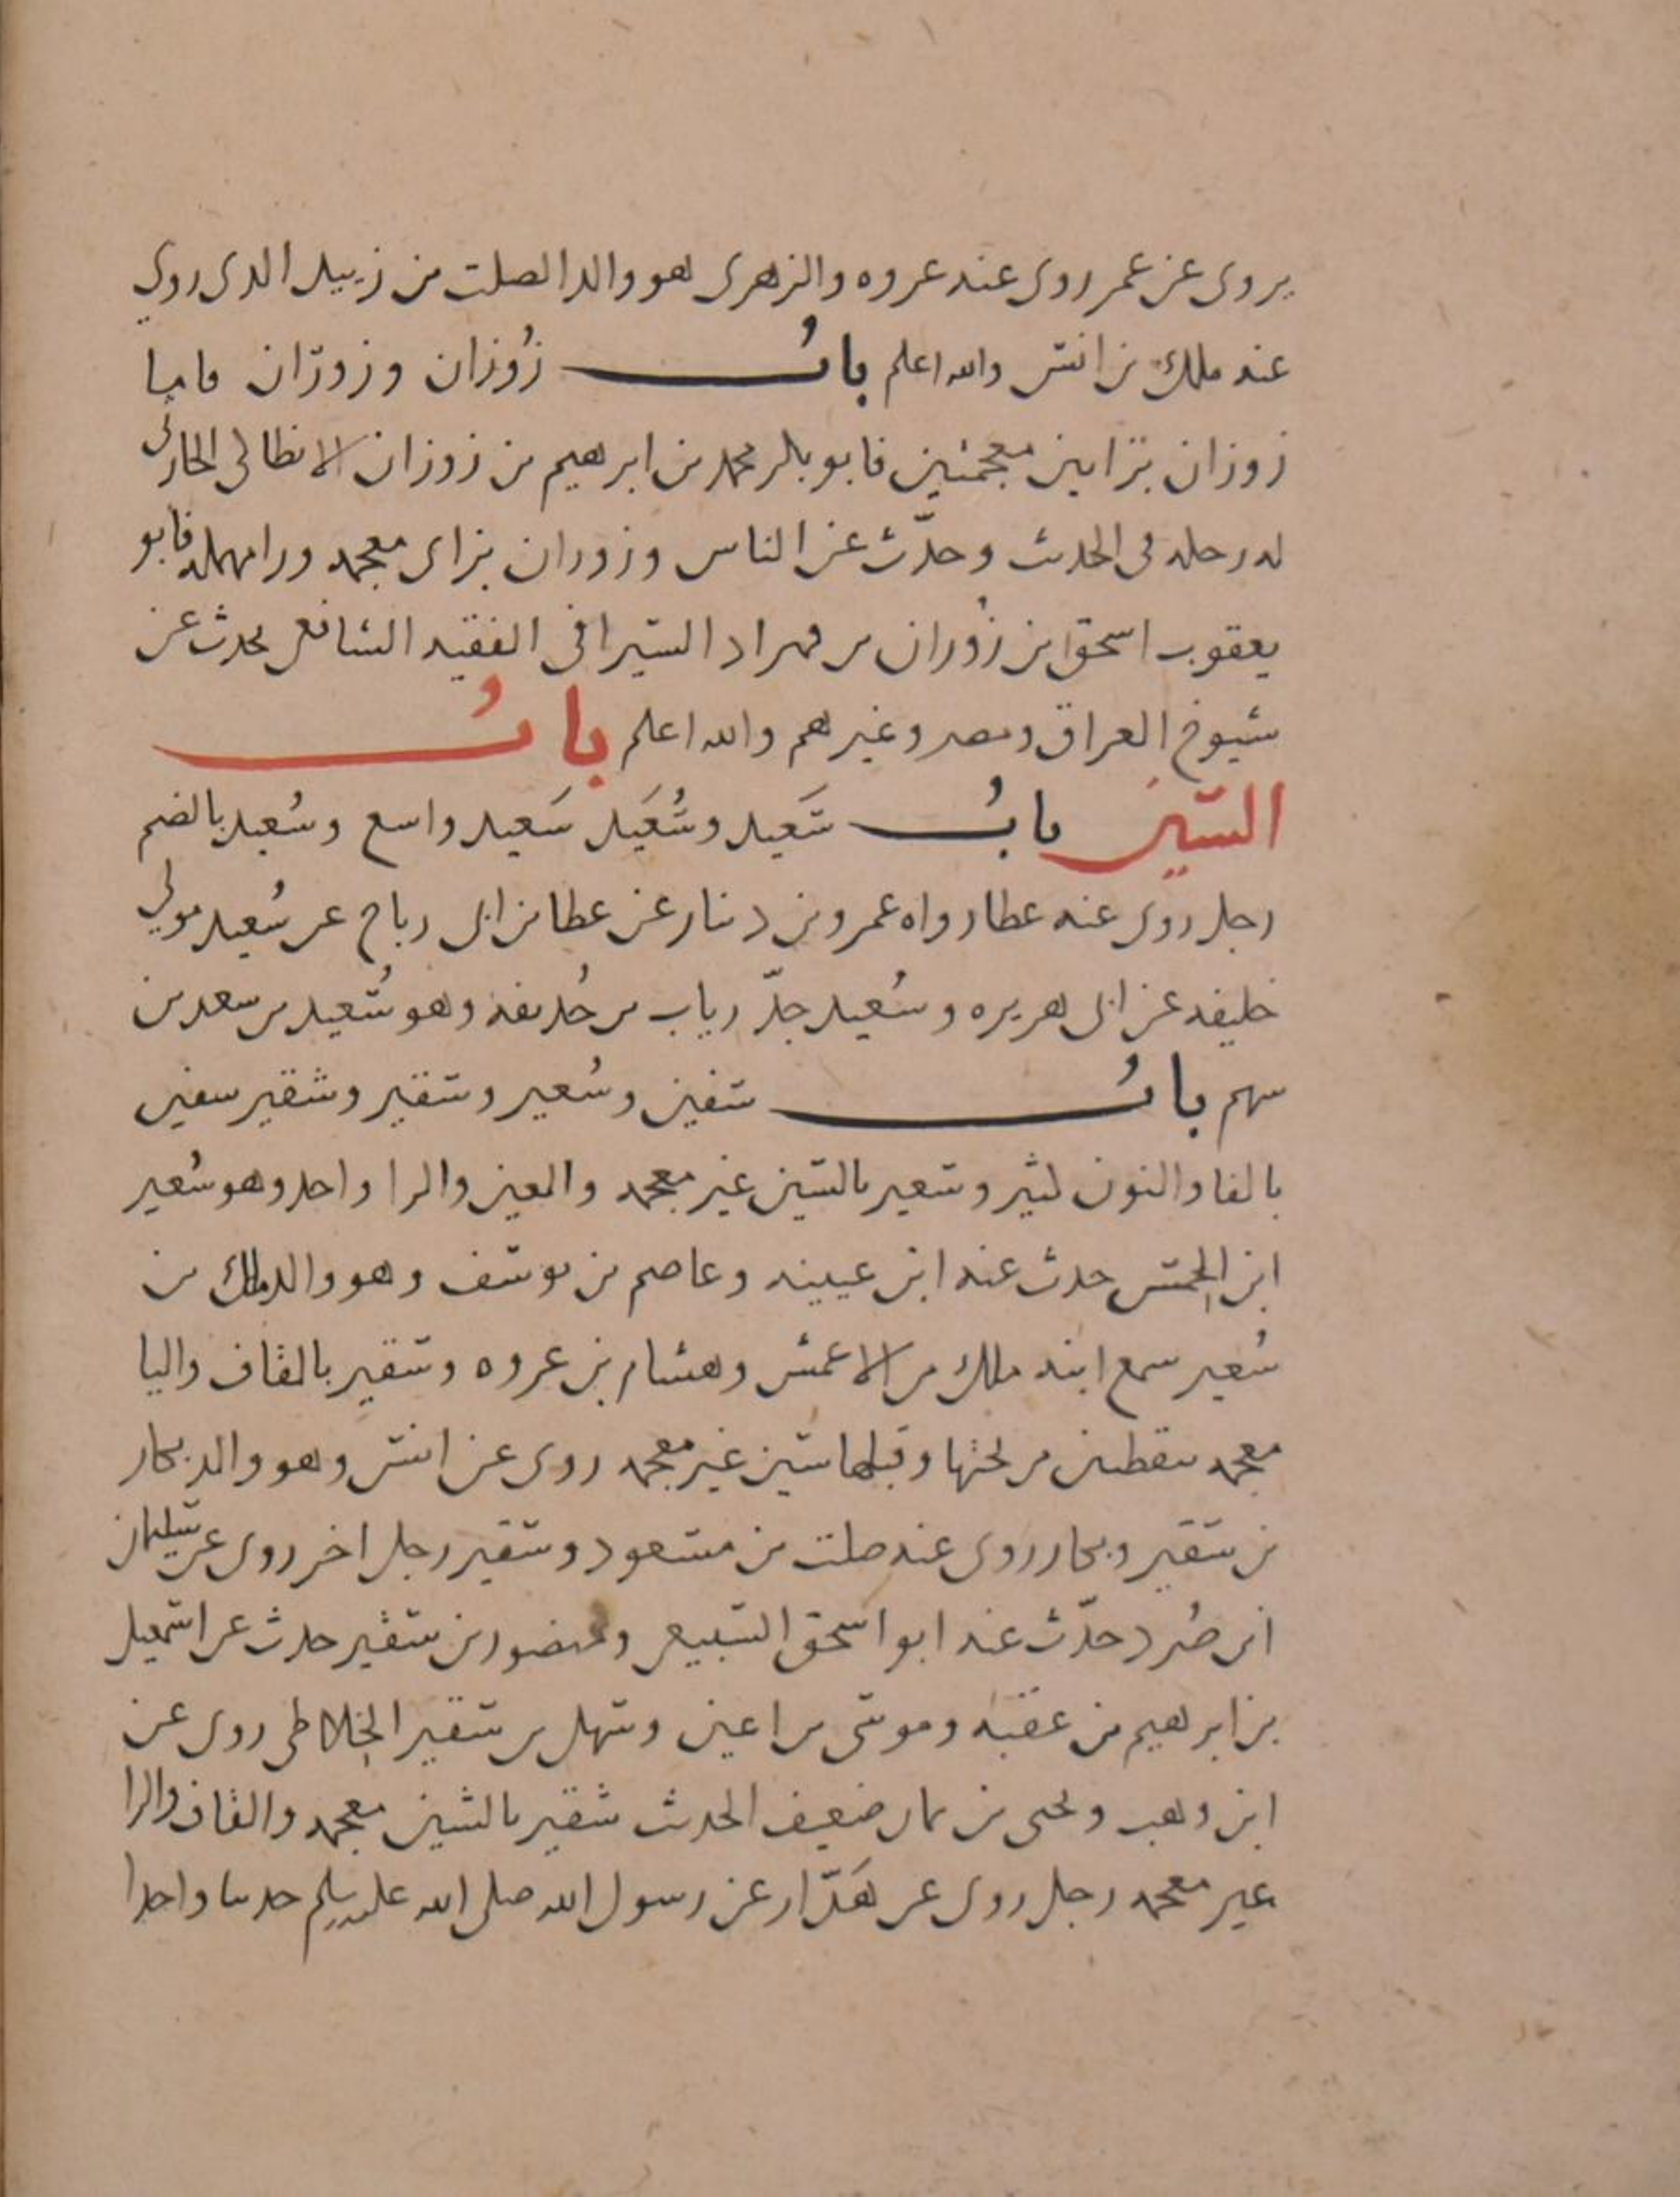 يروى عن عمر روى عنه عروه والزهرى هو والد الصلت بن زبيد الذى روى
عنه ملك بن انس والله اعلم باب زوزان وزوران فاما
زوزان بزايين معجمتين فابو بكر محمد بن ابرهيم بن زوزان الانطاكى الحارثى
له رحله فى الحديث وحدّث عن الناس وزوران بزاى معجمه ورا مهمله فابو
يعقوب اسحق بن زُوران بن قهزاد السيرافى الفقيه الشافعى يحدث عن
شيوخ العراق ومصر وغيرهم والله اعلم بابُ
السّين بابُ سَعيد وسُعَيد سَعيد واسع وسُعيد بالضم
رجل روى عنه عطا رواه عمرو بن دينار عن عطا بن ابى رباح عن سُعيد مولى
خليفه عن ابى هريره وسُعيد جدّ رياب بن حُذيفه وهو سُعيد بن سعد بن
سهم بابُ سفين وسُعير وسقير وشقير سفين
بالفا والنون كثير وسعير بالسّين غير معجمه والعين والرا واحد وهو سُعير
ابن الخِمس حدث عنه ابن عيينه وعاصم بن يوسف وهو والد ملك بن
سُعير سمع ابنه ملك من الاعمش وهشام بن عروه وسقير بالقاف واليا
معجمه بنقطتين من تحتها وقبلها سين غير معجمه روى عن انس وهو والد بحار
بن سقير وبحار روى عنه صلت بن مسعود وسقير رجل اخر روى عن سليمان
ابن صُرد حدّث عنه ابو اسحق السبيعى ومنصور بن سقير حدث عن اسمعيل
بن ابرهيم بن عقبه وموسى بن اعين وسهل بن سقير الخِلاطى روى عن
ابن وهب ويحيى بن يمان ضعيف الحديث شقير بالشين معجمه والقاف والرا
غير معجمه رجل روى عن هَدّار عن رسول الله صلى الله عليه وسلم حديثا واحدا